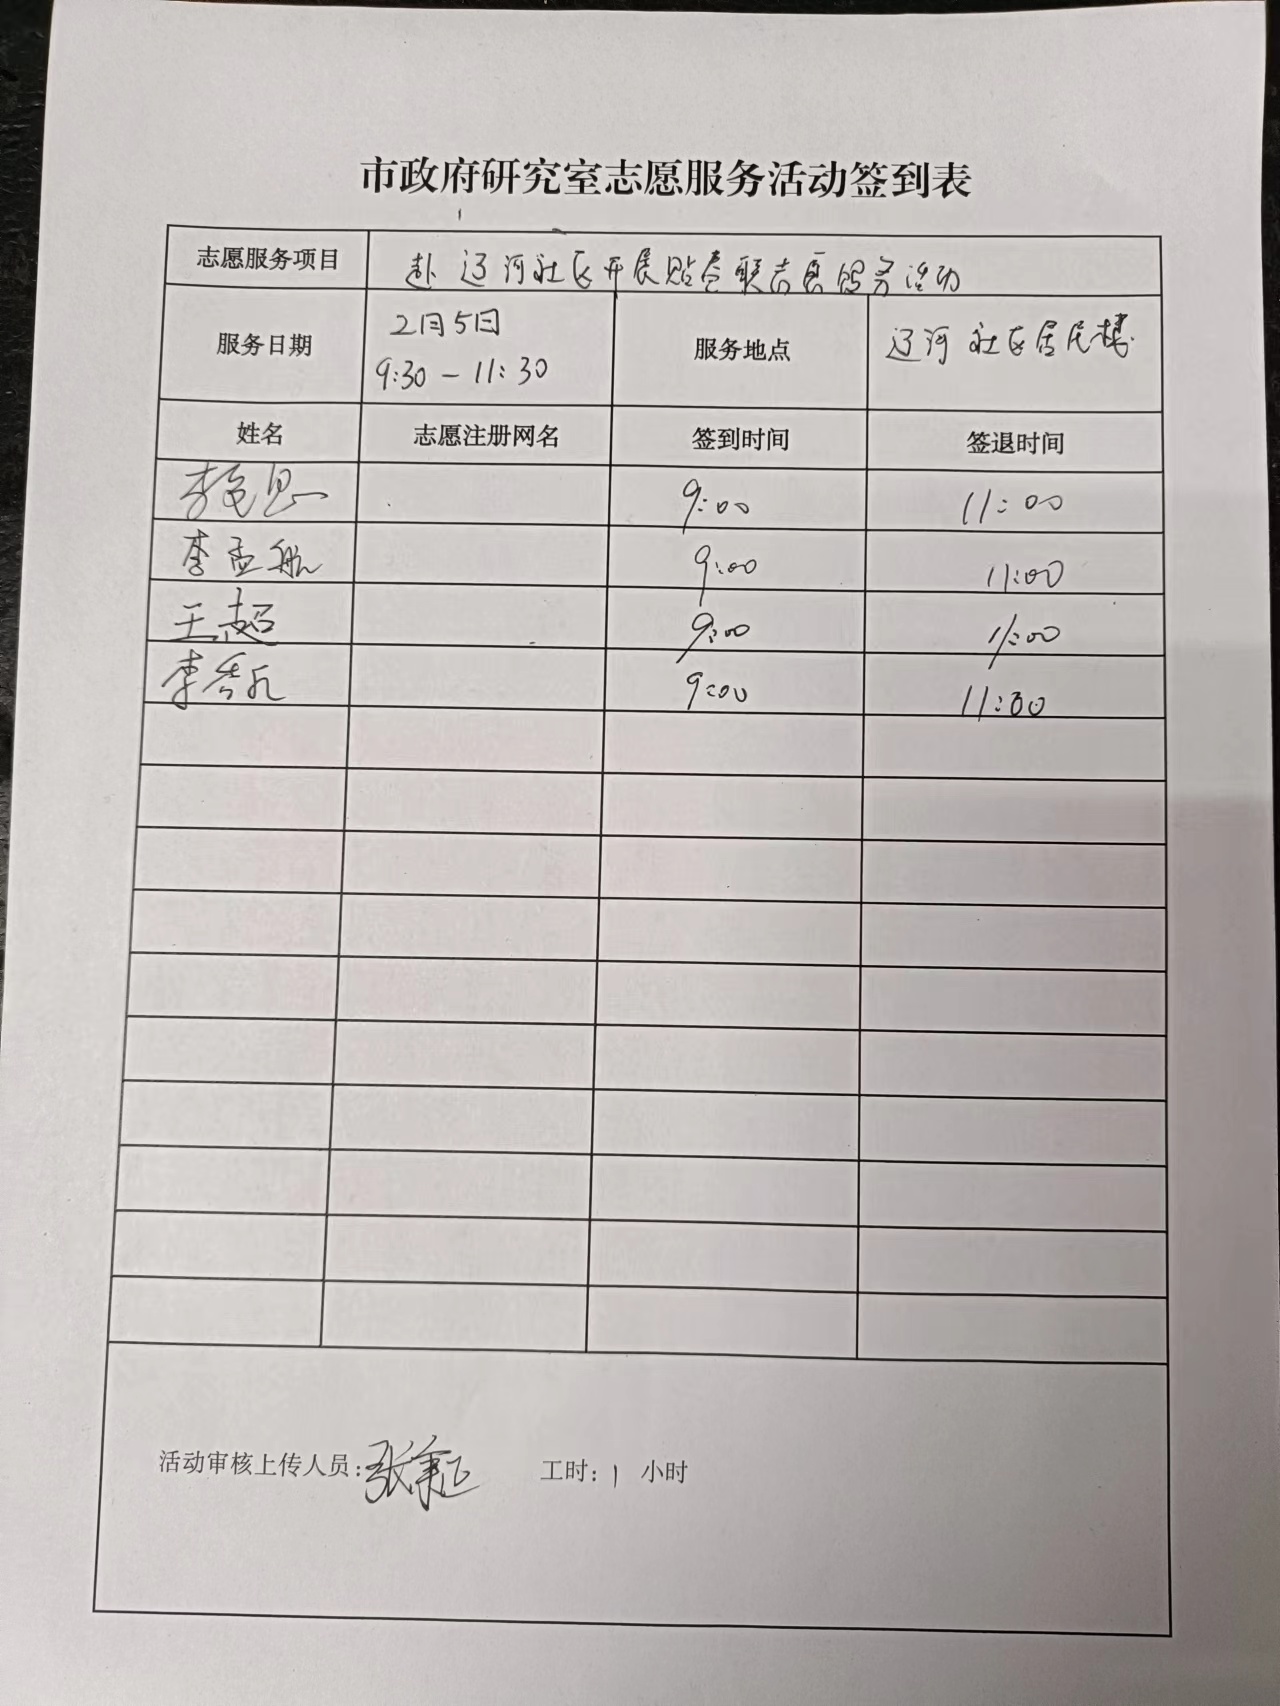 市政府研究室志愿服务活动签到表
志愿服务项目 赴辽河社区开展贴春联志愿服务活动
服务日期 2月5日 9:30－11:30 服务地点 辽河社区居民楼
姓名 志愿注册网名 签到时间 签退时间
李 9:00 11:00
李孟航 9:00 11:00
王超 9:00 11:00
李秀 9:00 11:30
活动审核上传人员: 张 工时: 1 小时